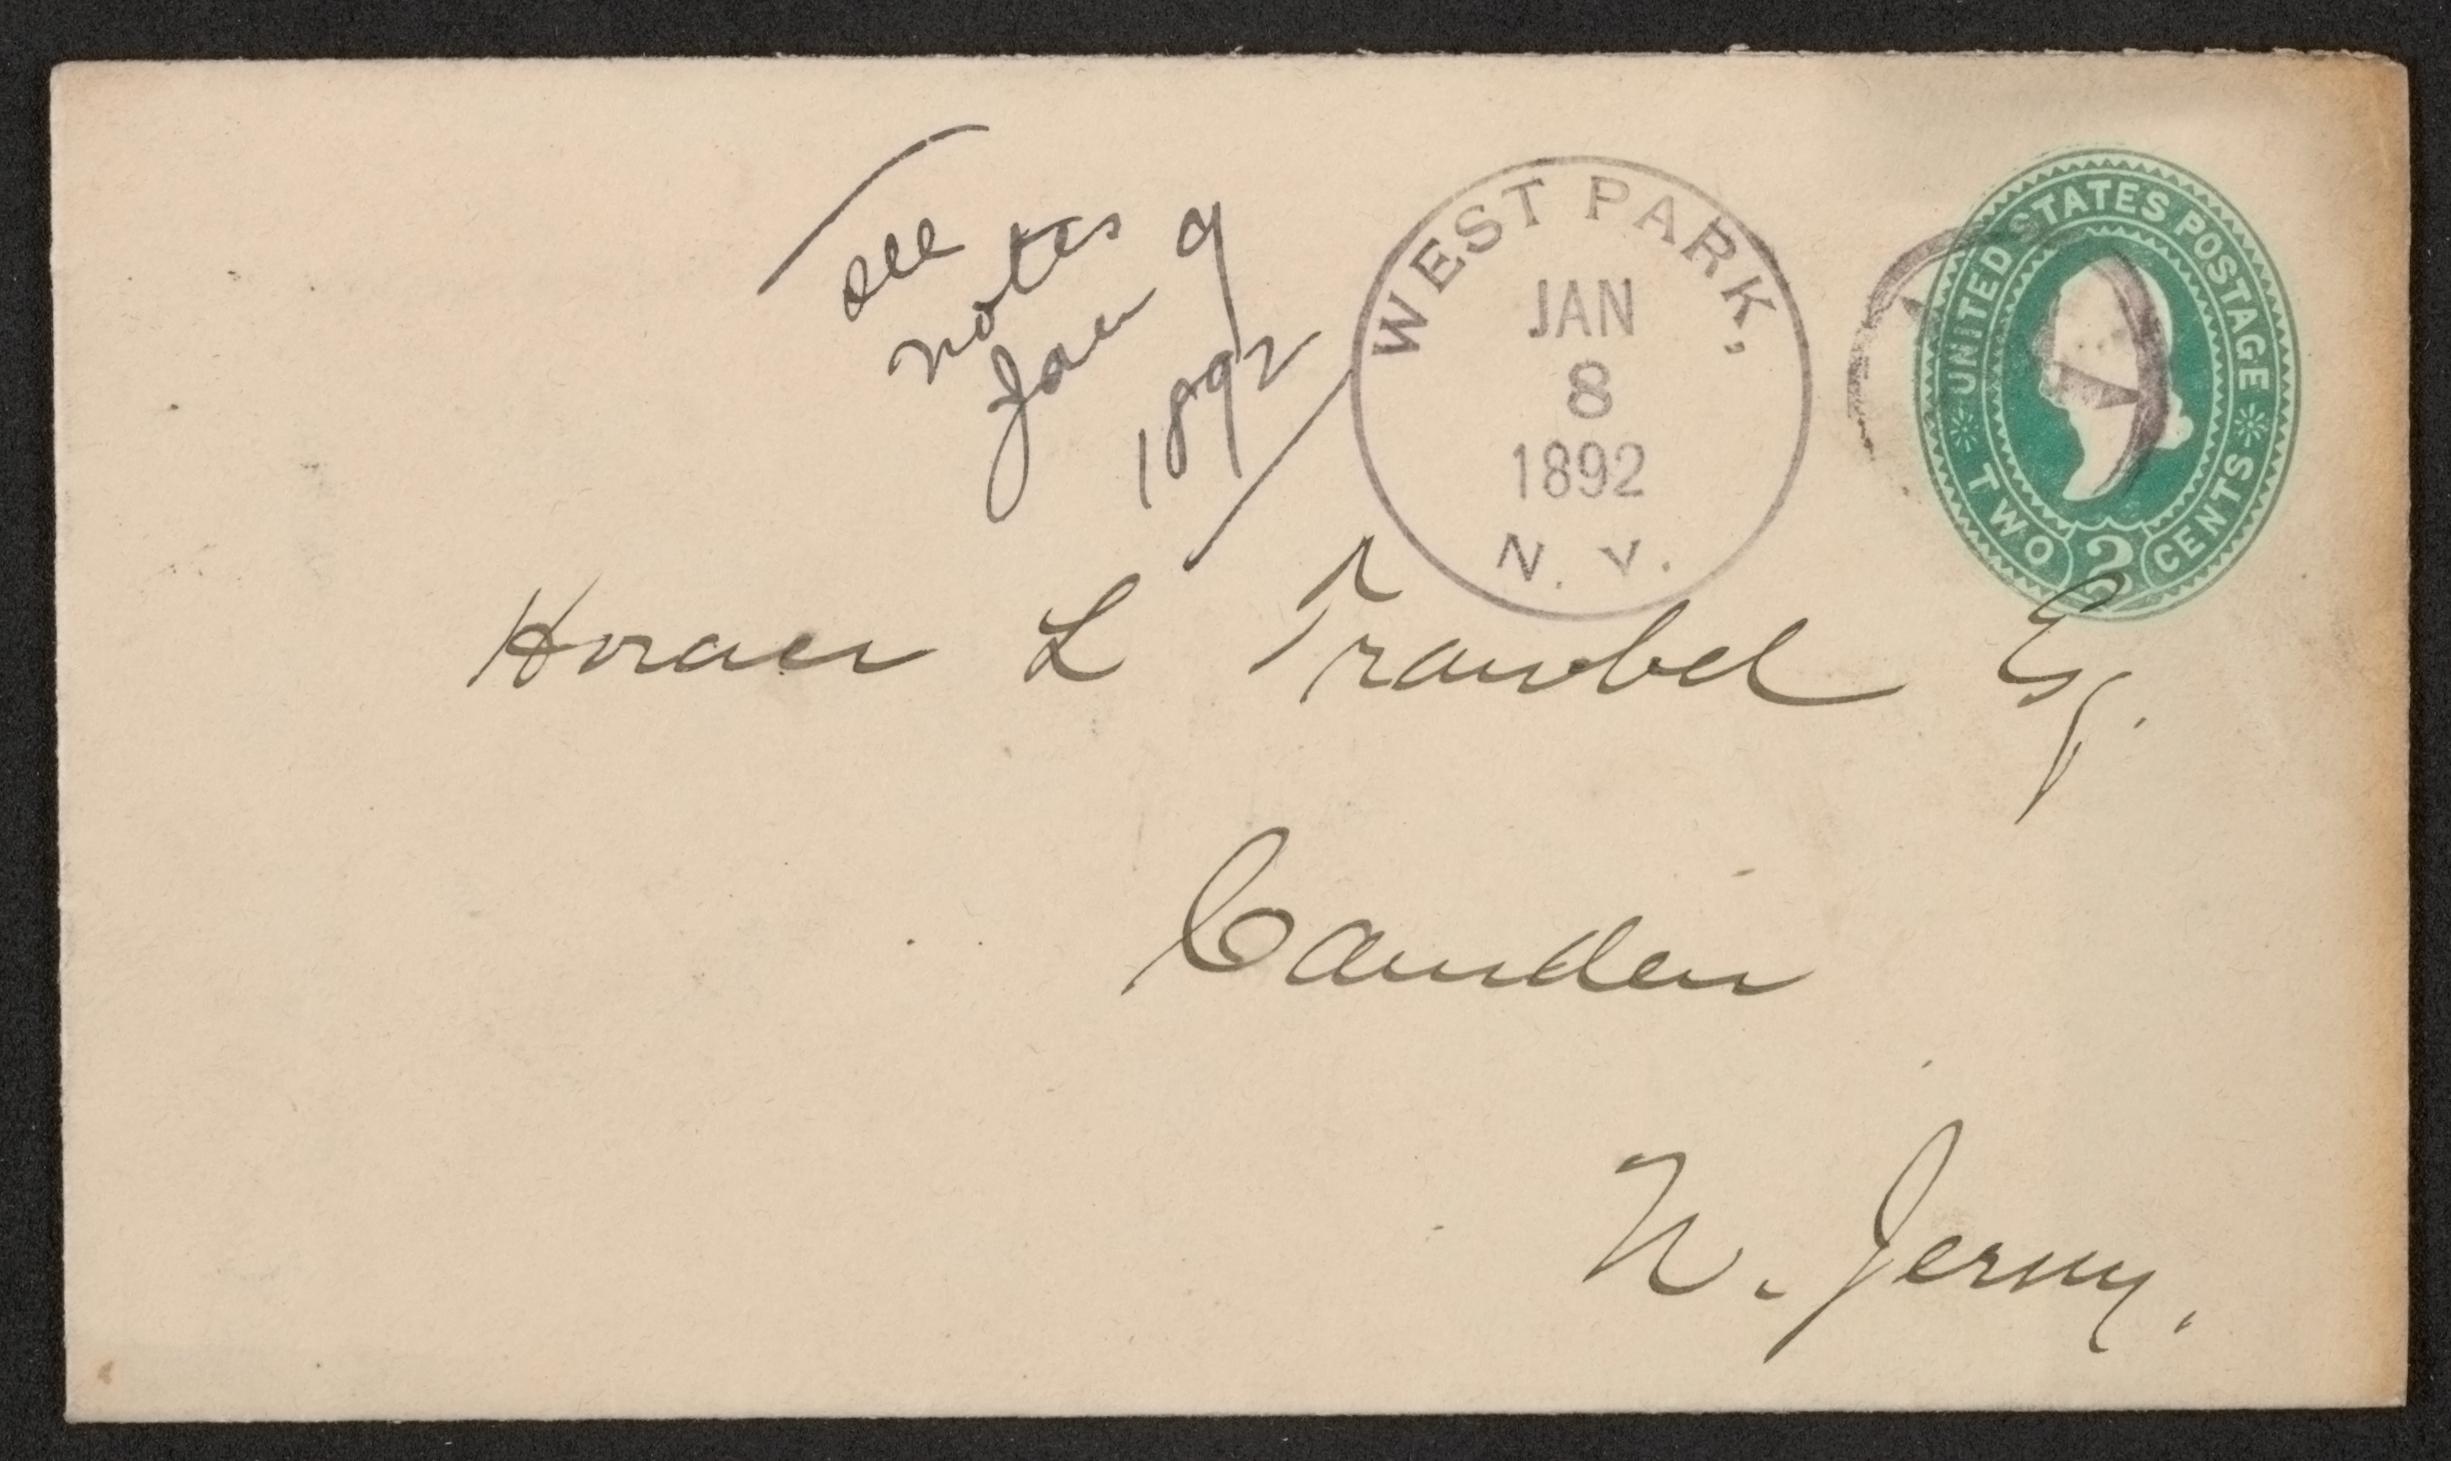 see
notes
Jan 9
1892
WEST PARK,
JAN
8
1892
N. Y.
UNITED STATES POSTAGE
TWO 2 CENTS
Horace L Traubel Esq.
Camden
N. Jersey.